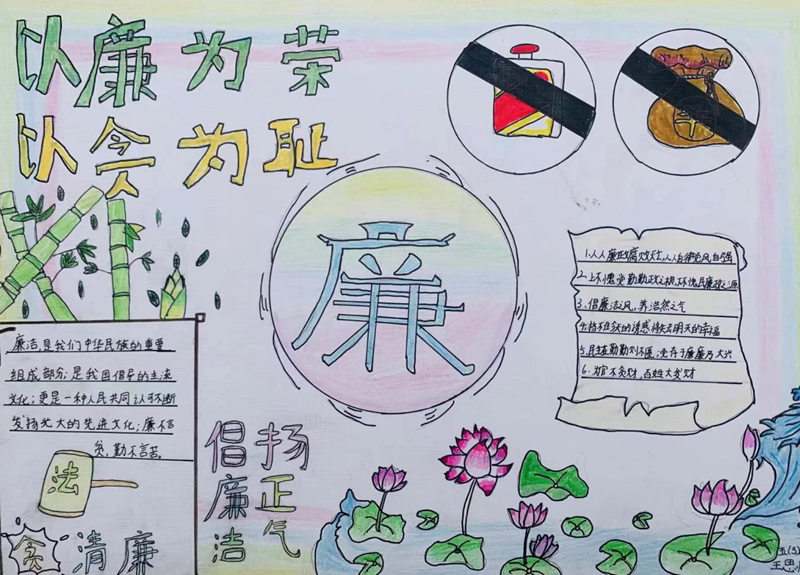 以廉为荣
以贪为耻
廉
1.人人廉政腐败灭,人人自律党风自强
2.上不愧党勤
3.倡廉洁之风,养浩然之气
的诱惑将失去明天的幸福
5.民生勤勤则不匮,
6.为官不贪财,百姓大发财
廉洁是我们中华民族的重要
组成部分;是我国倡导的主流
文化;更是一种人民共同认可不断
发扬光大的先进文化;廉不言
贫,勤不言苦
法
贪 清廉
倡廉洁
扬正气
五(3)
王思